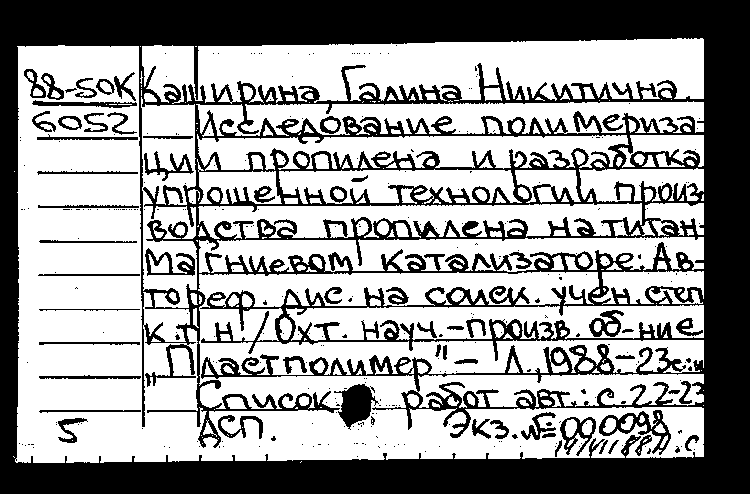 88-50К Каширина, Галина Никитична.
6052 Исследование полимериза-
ции пропилена и разработка
упрощенной технологии произ-
водства пропилена на титан-
магниевом катализаторе: Ав-
тореф. дис. на соиск. учен. степ
к.т.н. / Охт. науч.-произв. об-ние
„Пластполимер" – Л., 1988.-23с.:и
Список работ авт.: с. 22-23
5 ДСП. Экз. № 000098